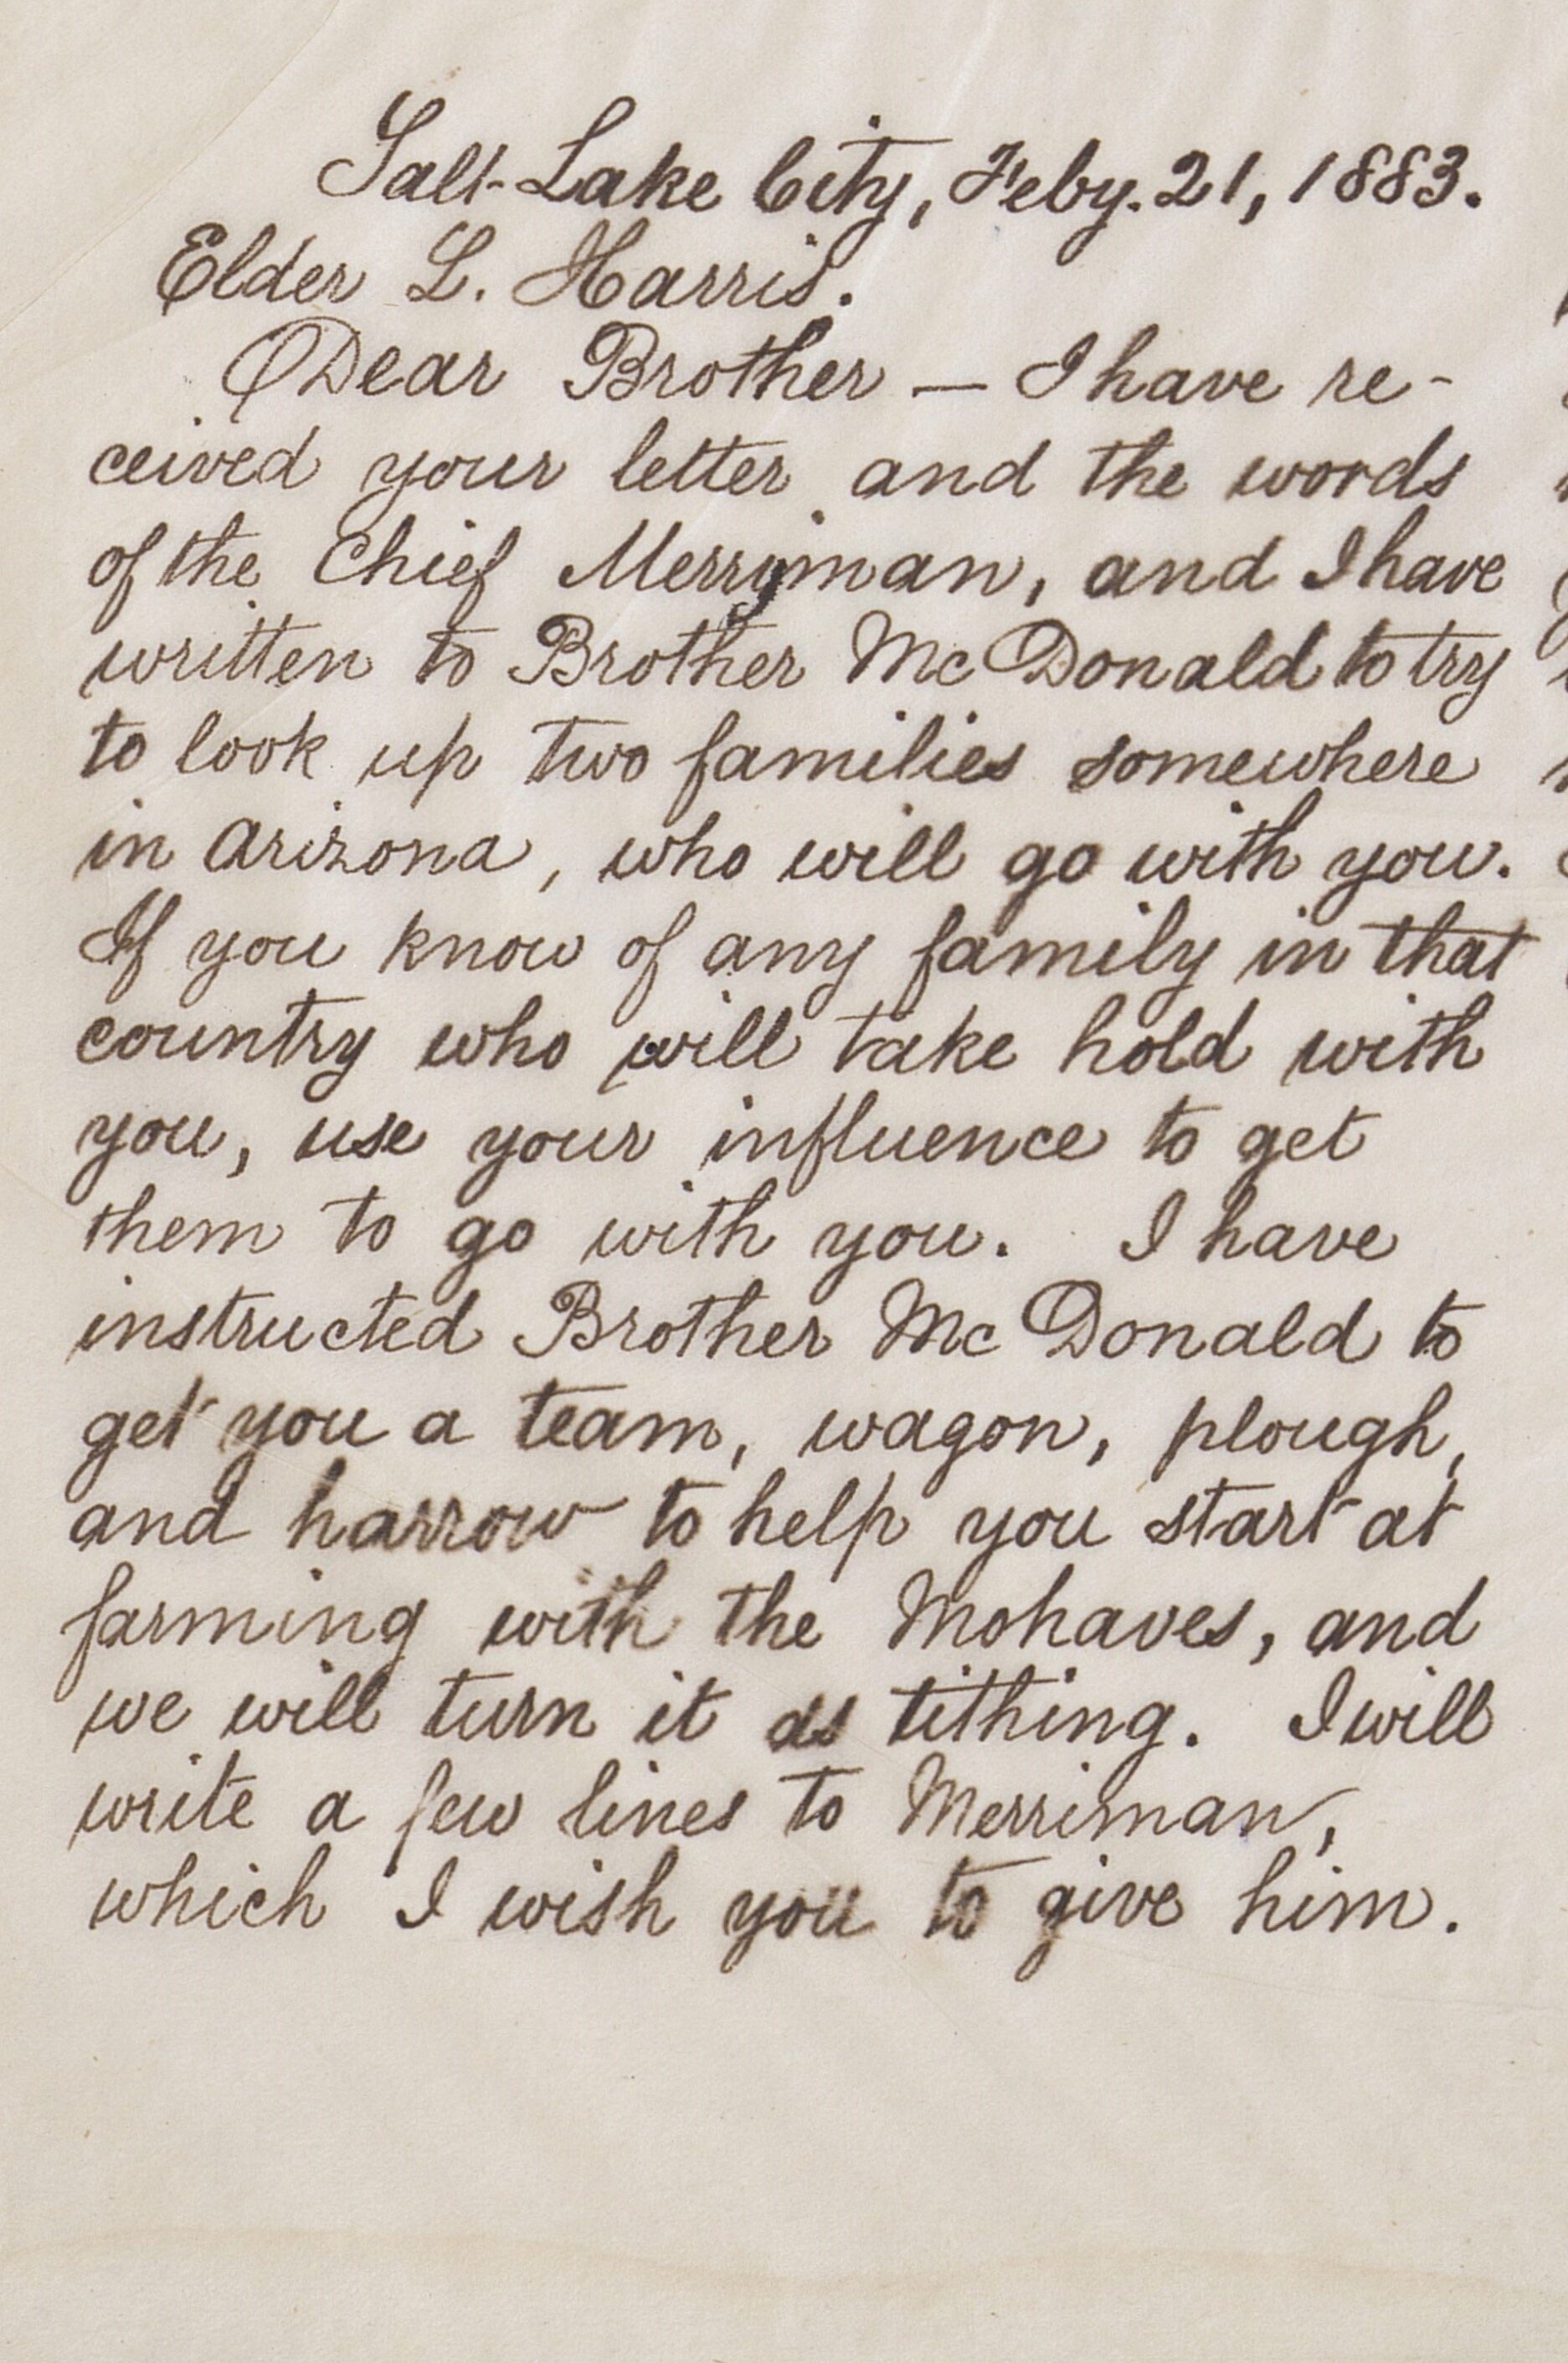 Salt Lake City, Feby. 21, 1883.
Elder L. Harris.
Dear Brother — I have re-
ceived your letter and the words
of the Chief Merryman, and I have
written to Brother McDonald to try
to look up two families somewhere
in Arizona, who will go with you.
If you know of any family in that
country who will take hold with
you, use your influence to get
them to go with you. I have
instructed Brother McDonald to
get you a team, wagon, plough,
and harrow to help you start at
farming with the Mohaves, and
we will turn it as tithing. I will
write a few lines to Merriman,
which I wish you to give him.